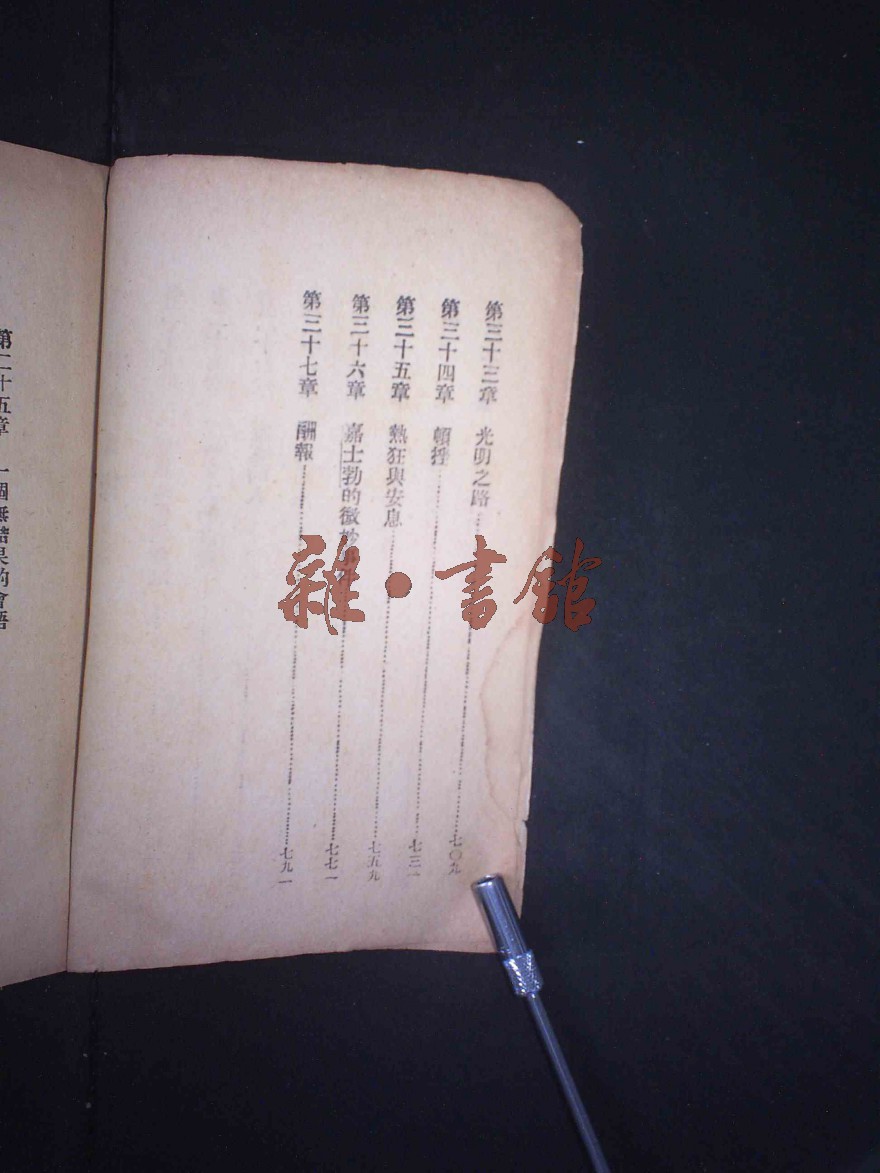 第三十三章 光明之路……七〇九
第三十四章 頓挫……七三一
第三十五章 熱狂與安息……七五九
第三十六章 嘉士勃的微妙……七七一
第三十七章 酬報……七九一
第二十五章 一個無結果的會晤
雜·書館